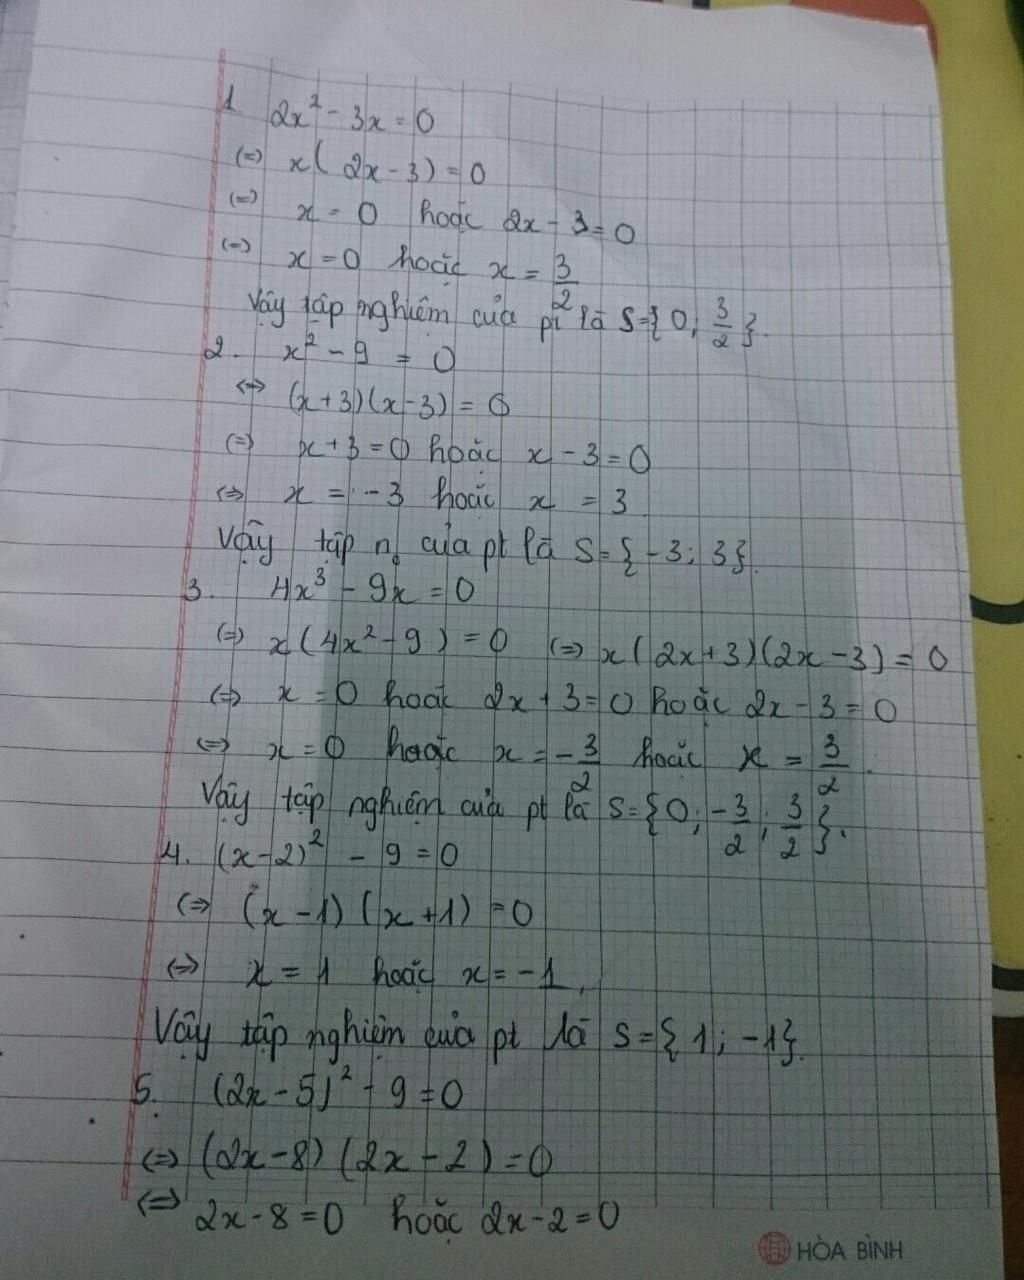 1. 2x² - 3x = 0
(=) x( 2x - 3) = 0
(=) x = 0 hoặc 2x - 3 = 0
(=) x = 0 hoặc x = 3/2
Vậy tập nghiệm của pt là S={0; 3/2}.
2. x² - 9 = 0
<=> (x+3)(x-3) = 0
(=) x+3=0 hoặc x - 3=0
<=> x = -3 hoặc x = 3.
Vậy tập n₀ của pt là S={-3; 3}.
3. 4x³ - 9x = 0
(=) x(4x² - 9) = 0 (=) x(2x+3)(2x-3) = 0
(=) x=0 hoặc 2x+3=0 hoặc 2x-3=0
<=> x=0 hoặc x=-3/2 hoặc x = 3/2.
Vậy tập nghiệm của pt là S={0; -3/2; 3/2}.
4. (x-2)² - 9 = 0
(=) (x-1) (x+1) = 0
<=> x = 1 hoặc x = -1.
Vậy tập nghiệm của pt là S={1; -1}.
5. (2x-5)² - 9 = 0
<=> (2x-8) (2x-2) = 0
<=> 2x-8=0 hoặc 2x-2=0
HÒA BÌNH